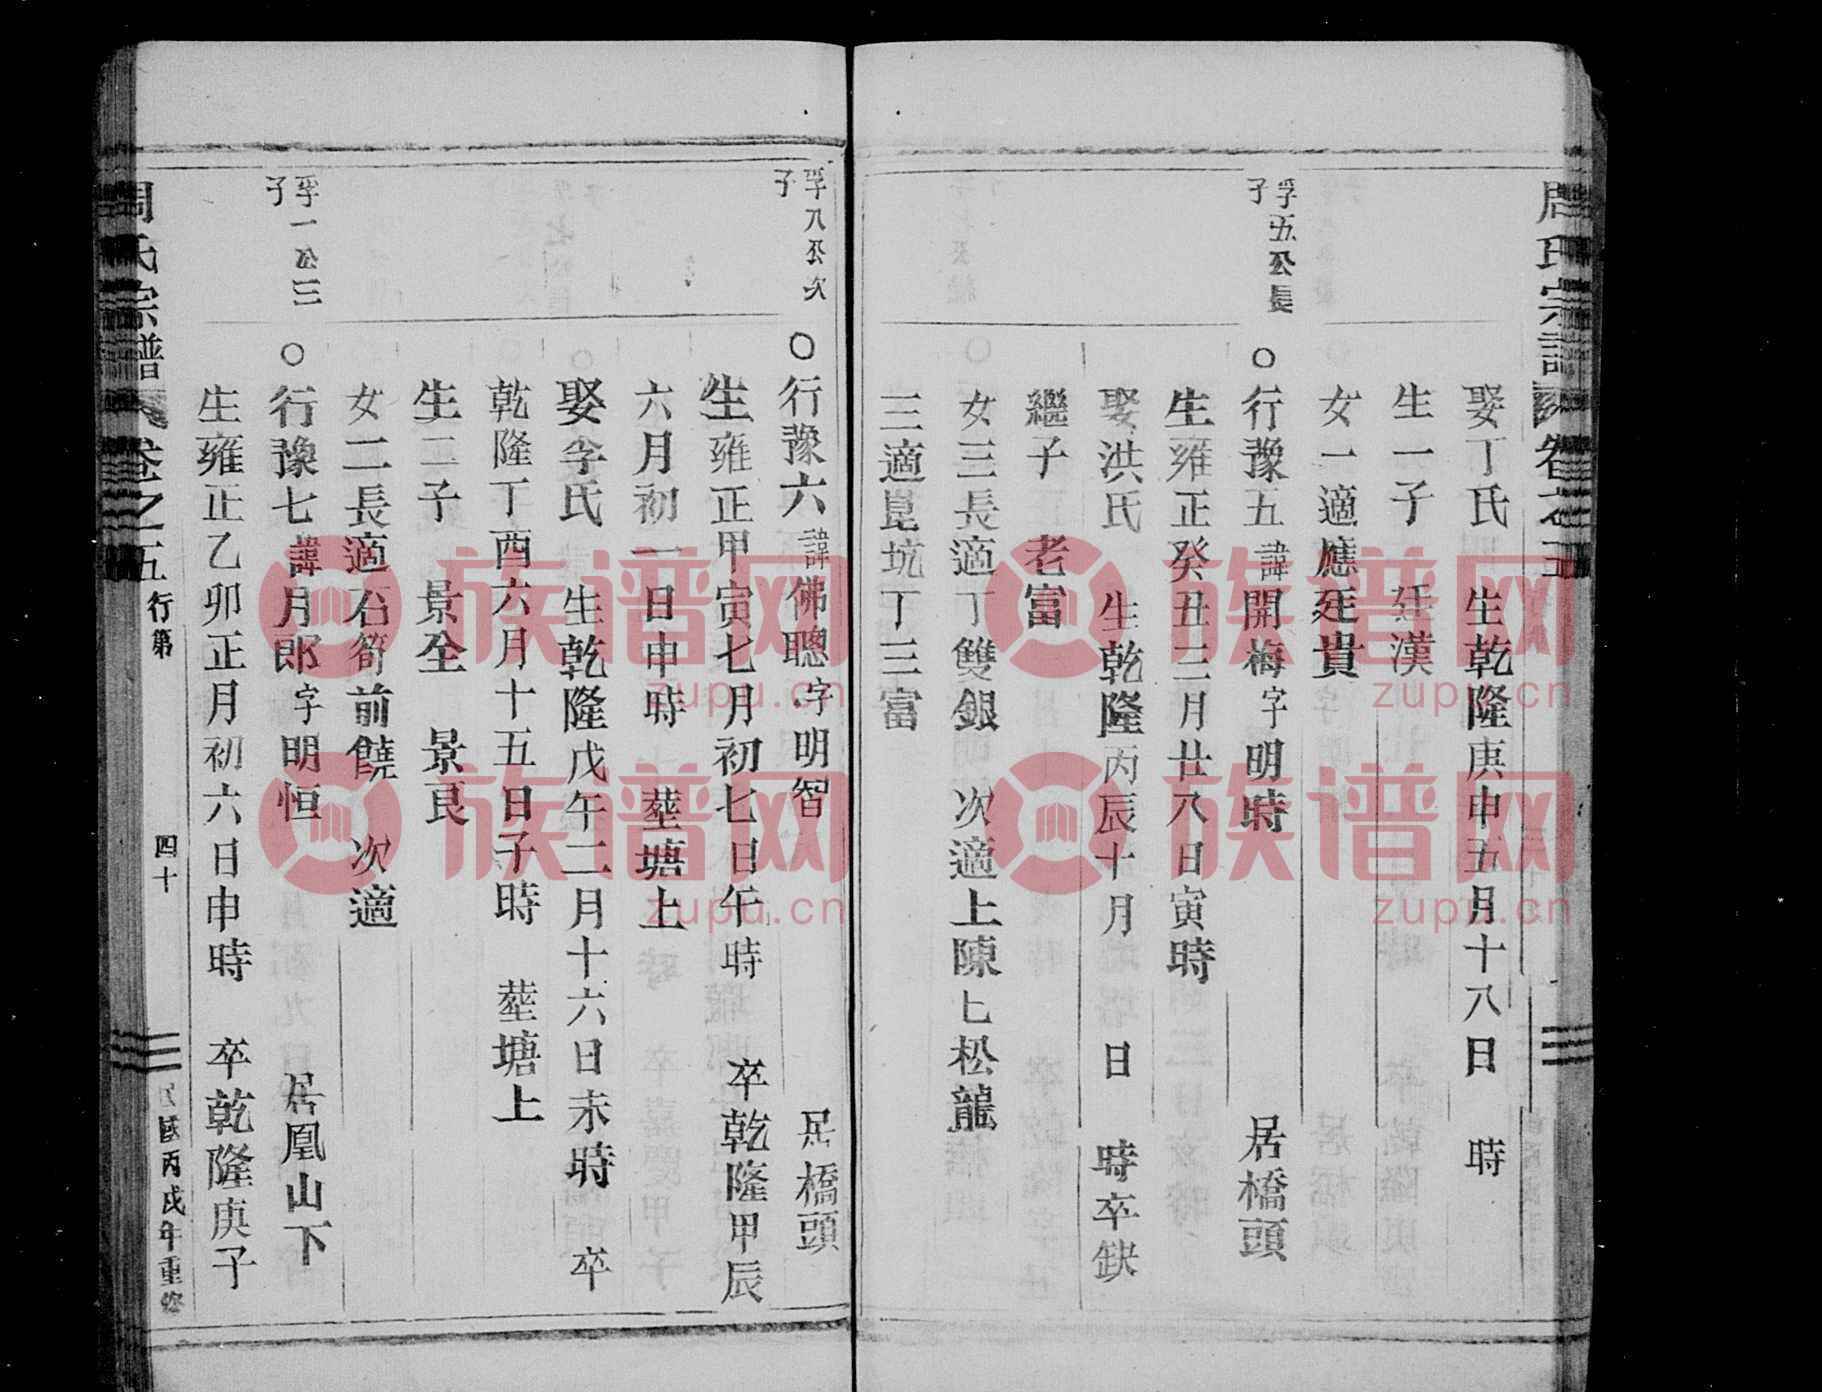 周氏宗譜 卷之五
娶丁氏 生乾隆庚申五月十八日 時
生一子 廷漢
女一適應廷貴
孚五公長子
○行豫五諱開梅字明時 居橋頭
生雍正癸丑三月廿八日寅時
娶洪氏 生乾隆丙辰十月 日 時卒缺
繼子 老富
女三長適丁雙銀 次適上陳七松龍
三適崑坑丁三富
孚八公次子
○行豫六諱佛聰字明智 居橋頭
生雍正甲寅七月初七日午時 卒乾隆甲辰
六月初一日申時 塟塘上
娶李氏 生乾隆戊午二月十六日未時 卒
乾隆丁酉六月十五日子時 塟塘上
生二子 景全 景良
女二長適石筍前饒 次適
孚一公三子
○行豫七諱月郎字明恒 居凰山下
生雍正乙卯正月初六日申時 卒乾隆庚子
周氏宗譜 卷之五 行第 四十 民國丙戌年重修
族谱网
zupu.cn
族谱网
zupu.cn
族谱网
zupu.cn
族谱网
zupu.cn